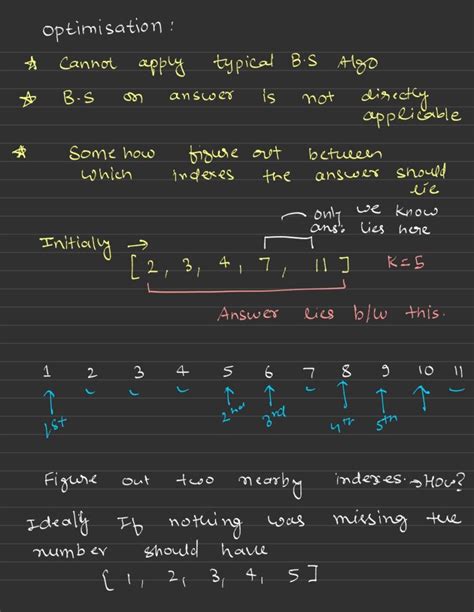 optimisation:
☆ Cannot apply typical B.S Algo
☆ B.S on answer is not directly
applicable
☆ Some how figure out between
which indexes the answer should
lie
only we know
ans. lies here
Initially →
[2, 3, 4, 7, 11] K=5
Answer lies b/w this.
1 2 3 4 5 6 7 8 9 10 11
1st 2nd 3rd 4th 5th
Figure out two nearby indexes. → How?
Idealy If nothing was missing the
number should have
[1, 2, 3, 4, 5]